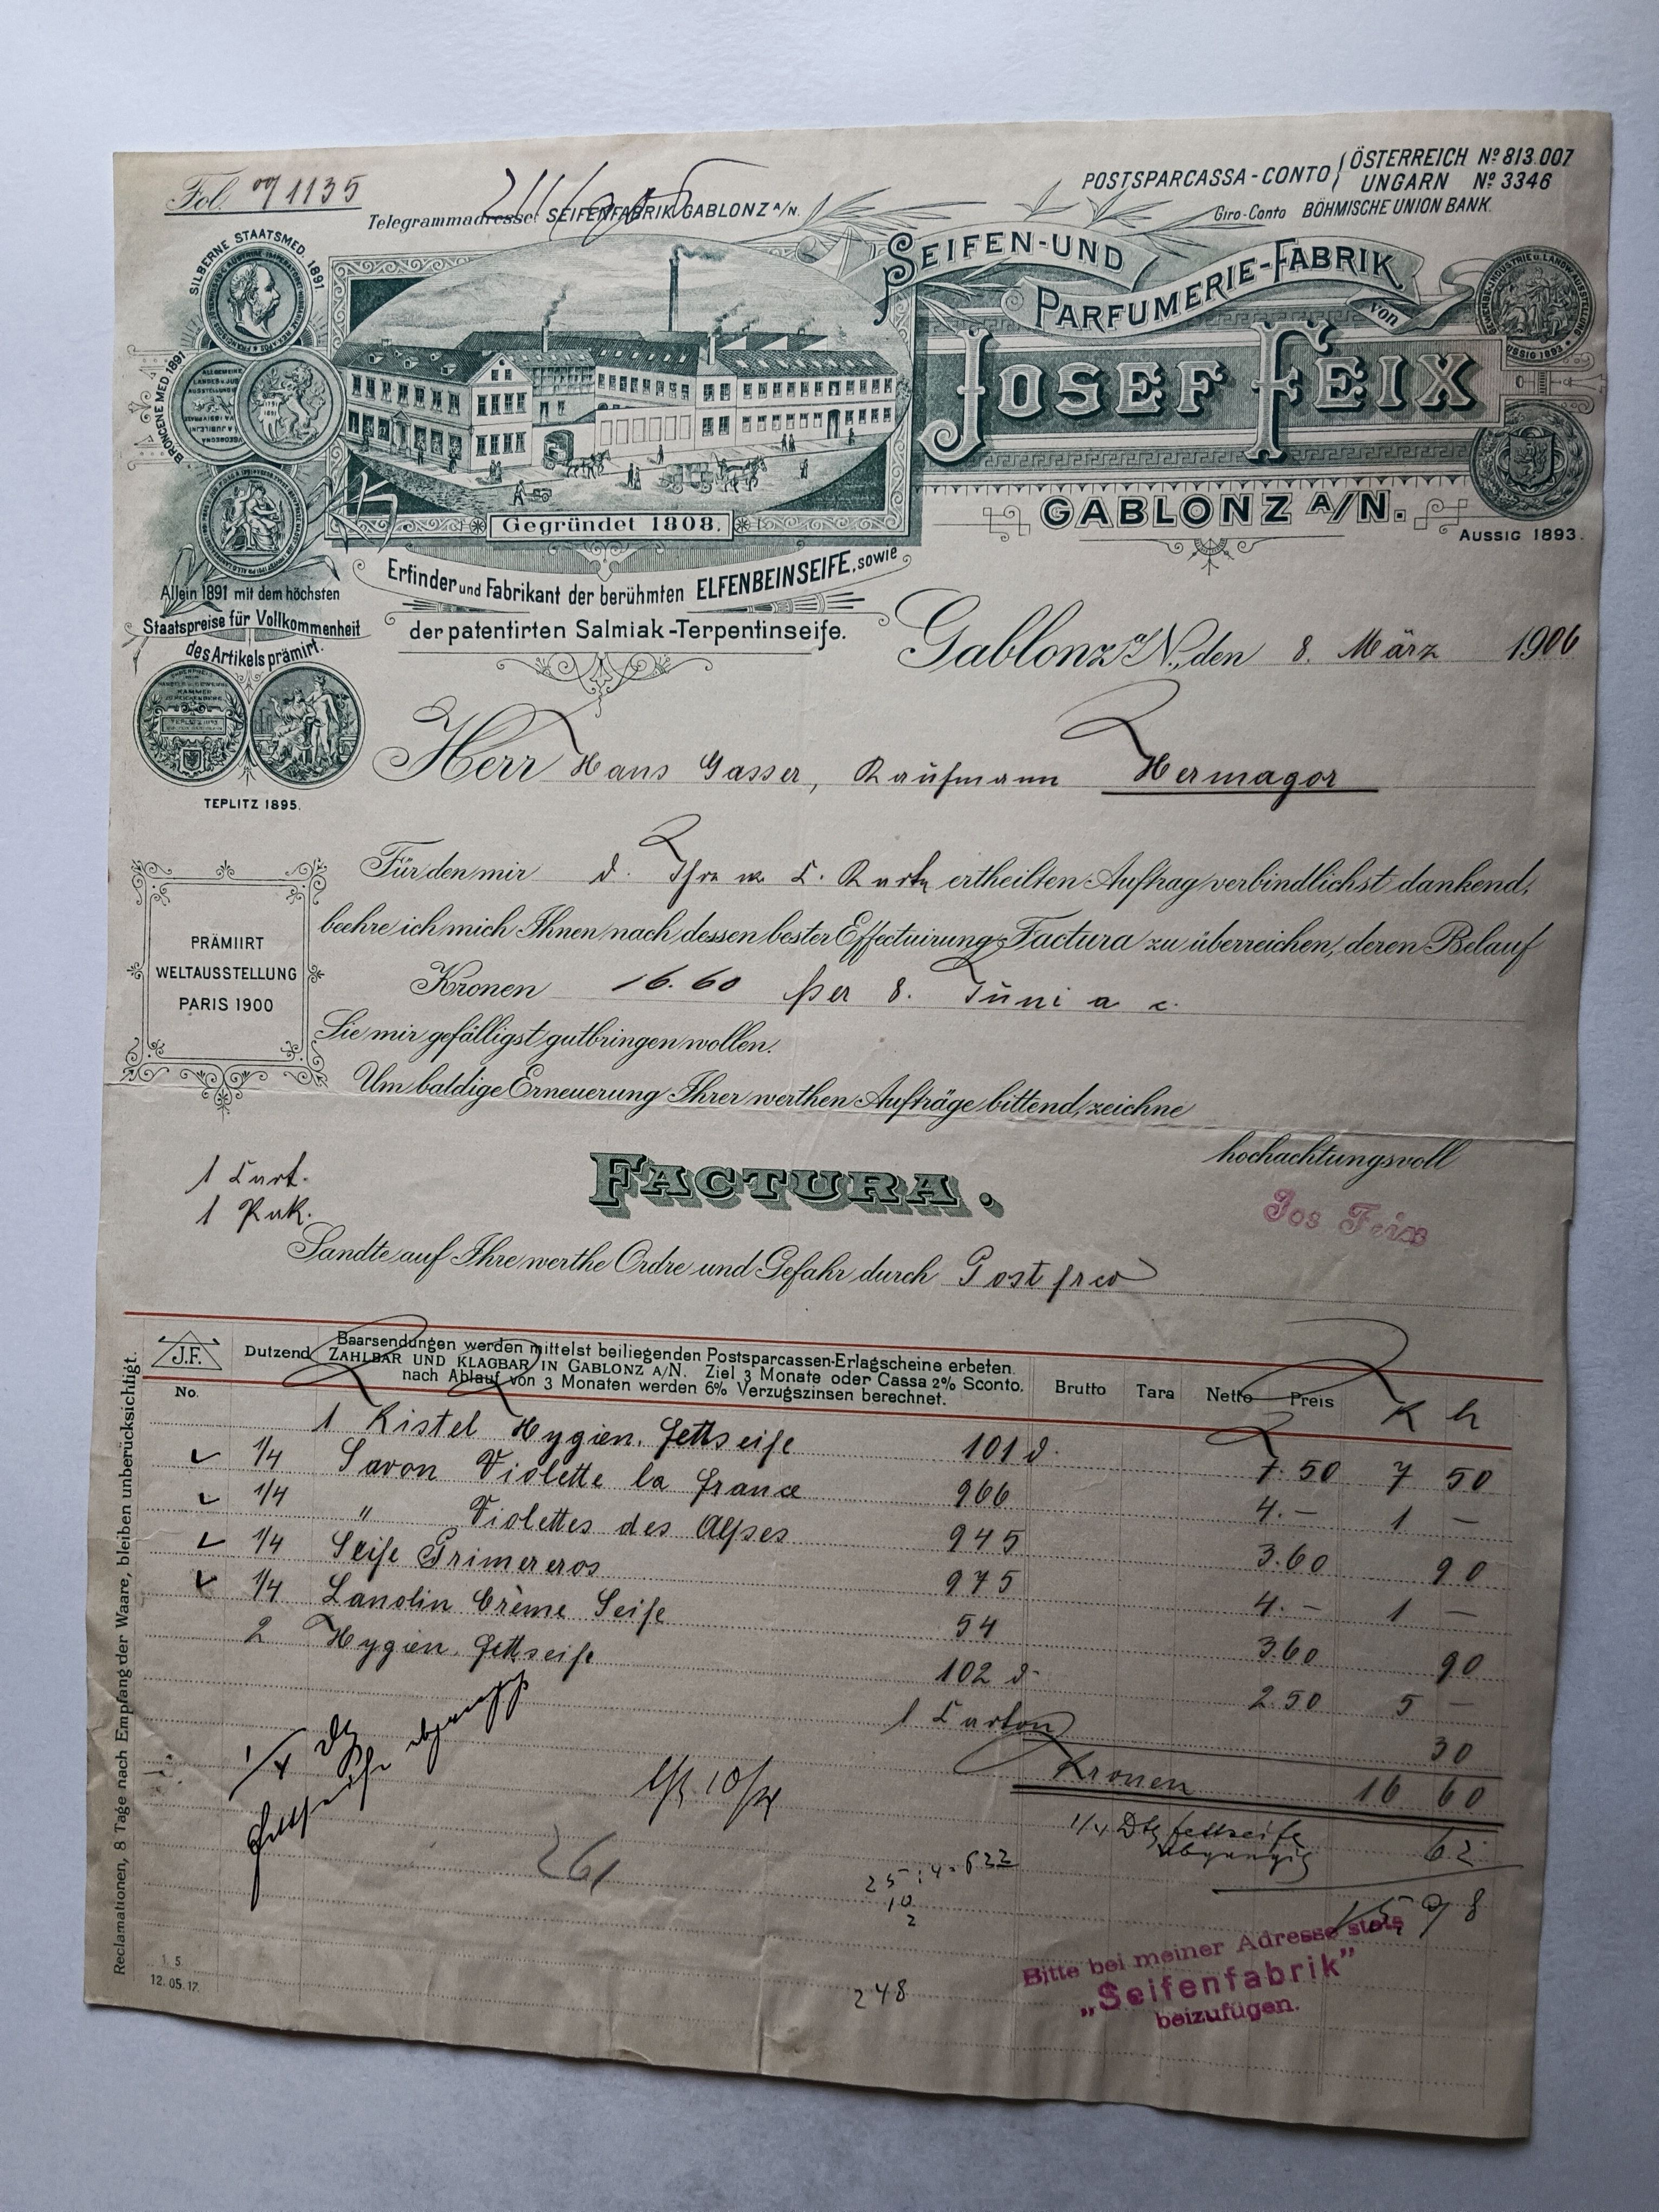 Fol. 1135
Telegrammadresse: SEIFENFABRIK GABLONZ A/N.
POSTSPARCASSA-CONTO ÖSTERREICH Nº 813.007
UNGARN Nº 3346
Giro-Conto BÖHMISCHE UNION BANK.
SILBERNE STAATSMED. 1891
BRONCENE MED 1891
SEIFEN-UND
PARFUMERIE-FABRIK
von
JOSEF FEIX
GABLONZ A/N.
AUSSIG 1893.
Gegründet 1808.
Erfinder und Fabrikant der berühmten ELFENBEINSEIFE, sowie
der patentirten Salmiak-Terpentinseife.
Allein 1891 mit dem höchsten
Staatspreise für Vollkommenheit
des Artikels prämirt.
TEPLITZ 1895.
Gablonz a/N., den 8. März 1906
Herr Hans Gasser, Kaufmann Hermagor
Für den mir d. Ihre w. C. Karte ertheilten Auftrag verbindlichst dankend,
beehre ich mich Ihnen nach dessen bester Effectuirung Factura zu überreichen, deren Belauf
Kronen 16.60 per 8. Juni a. c.
Sie mir gefälligst gutbringen wollen.
Um baldige Erneuerung Ihrer werthen Aufträge bittend, zeichne
hochachtungsvoll
Jos Feix
PRÄMIIRT
WELTAUSSTELLUNG
PARIS 1900
1 Cart.
1 Pak.
FACTURA.
Sandte auf Ihre werthe Ordre und Gefahr durch Post frco
J.F.
No.
Dutzend
Baarsendungen werden mittelst beiliegenden Postsparcassen-Erlagscheine erbeten.
ZAHLBAR UND KLAGBAR IN GABLONZ A/N. Ziel 3 Monate oder Cassa 2% Sconto.
nach Ablauf von 3 Monaten werden 6% Verzugszinsen berechnet.
Brutto Tara Netto Preis K h
1 Kistel Hygien. Fettseife 101 d. 7.50 7 50
1/4 Savon Violette la france 966 4.— 1 —
1/4 " Violettes des Alpes 945 3.60 90
1/4 Seife Primereros 975 4.— 1 —
1/4 Lanolin Crème Seife 54 3.60 90
2 Hygien. Fettseife 102 d. 2.50 5 —
1 Carton 30
Kronen 16 60
1/4 Dtz Fettseife
abgängig 62
15,98
1/4 Dtz
Fettseife abgängig
261
25:4=622
10
2
248
Bitte bei meiner Adresse stets
„Seifenfabrik"
beizufügen.
Reclamationen, 8 Tage nach Empfang der Waare, bleiben unberücksichtigt.
1. 5.
12.05.17.